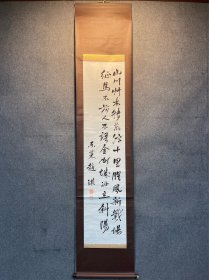 山川艸木轉荒涼十里腥風新戰場
征馬不前人不語金州城外立斜陽